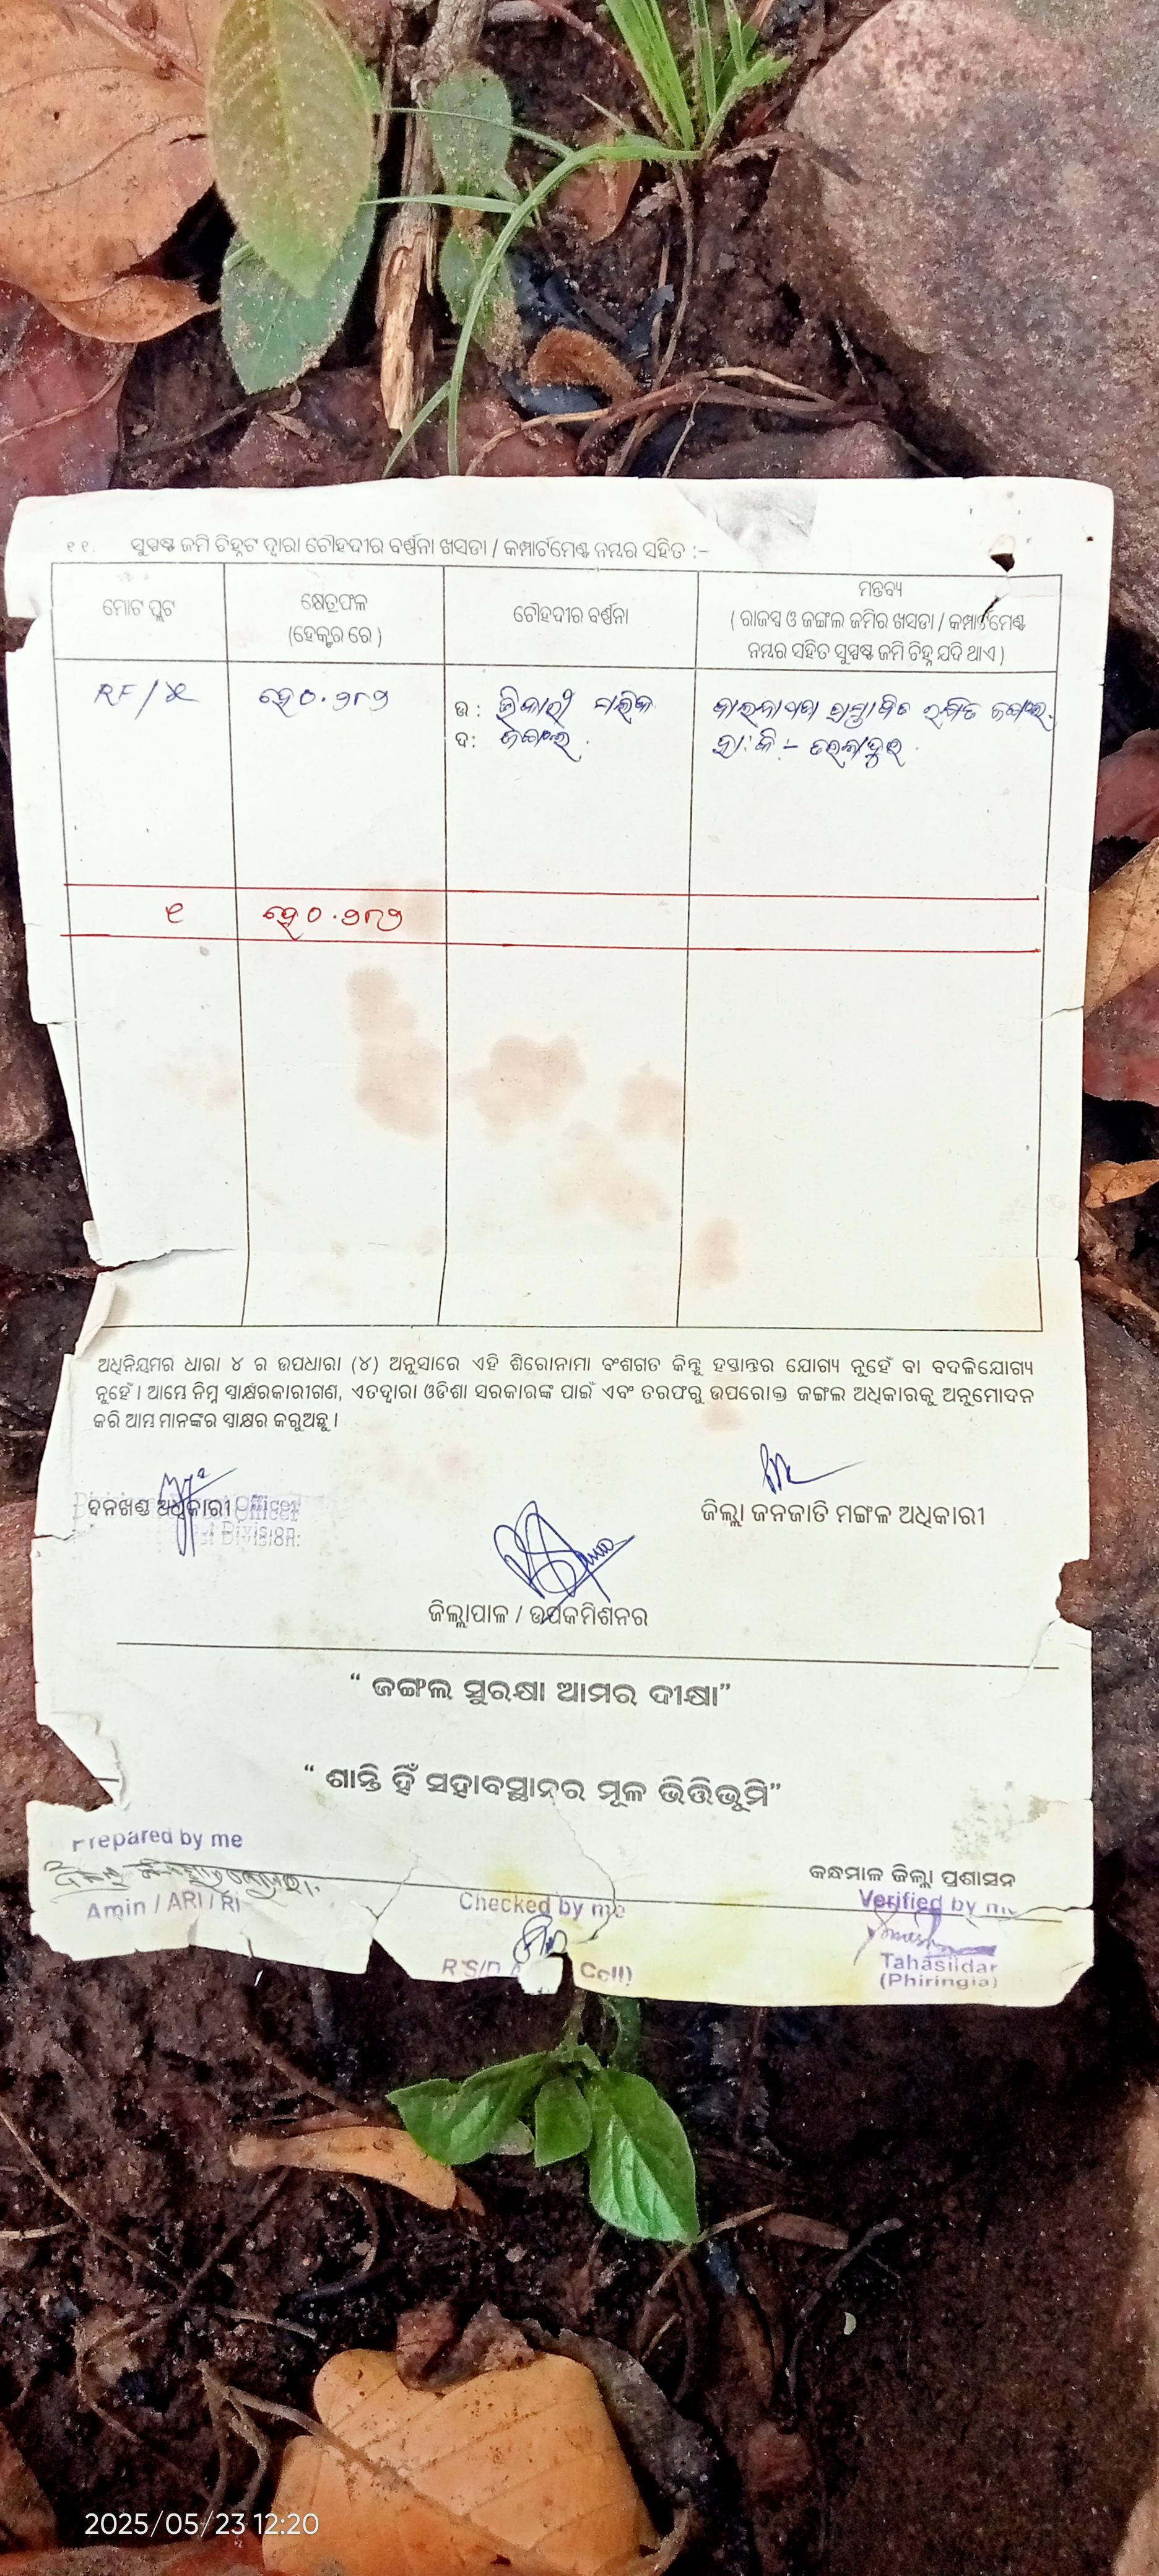 ୧୧. ସୁସ୍ପଷ୍ଟ ଜମି ଚିହ୍ନଟ ଦ୍ୱାରା ଚୌହଦୀର ବର୍ଣ୍ଣନା ଖସଡା / କମ୍ପାର୍ଟମେଣ୍ଟ ନମ୍ବର ସହିତ :–
ମୋଟ ପ୍ଲଟ
କ୍ଷେତ୍ରଫଳ
(ହେକ୍ଟର ରେ )
ଚୌହଦୀର ବର୍ଣ୍ଣନା
ମନ୍ତବ୍ୟ
( ରାଜସ୍ୱ ଓ ଜଙ୍ଗଲ ଜମିର ଖସଡା / କମ୍ପାର୍ଟମେଣ୍ଟ
ନମ୍ବର ସହିତ ସୁସ୍ପଷ୍ଟ ଜମି ଚିହ୍ନ ଯଦି ଥାଏ )
RF /
ହେ ୦.୬୮୬
ଉ : ଭିକାରୀ ମଲିକ
ଦ: ଜଙ୍ଗଲ.
ପ୍ରସ୍ତାବିତ ରକ୍ଷିତ ଜଙ୍ଗଲ.
୧
ହେ ୦.୬୮୬
ଅଧିନିୟମର ଧାରା ୪ ର ଉପଧାରା (୪) ଅନୁସାରେ ଏହି ଶିରୋନାମା ବଂଶଗତ କିନ୍ତୁ ହସ୍ତାନ୍ତର ଯୋଗ୍ୟ ନୁହେଁ ବା ବଦଳିଯୋଗ୍ୟ
ନୁହେଁ । ଆମ୍ଭେ ନିମ୍ନ ସ୍ୱାକ୍ଷରକାରୀଗଣ, ଏତଦ୍ୱାରା ଓଡିଶା ସରକାରଙ୍କ ପାଇଁ ଏବଂ ତରଫରୁ ଉପରୋକ୍ତ ଜଙ୍ଗଲ ଅଧିକାରକୁ ଅନୁମୋଦନ
କରି ଆମ୍ଭ ମାନଙ୍କର ସ୍ୱାକ୍ଷର କରୁଅଛୁ ।
ବନଖଣ୍ଡ ଅଧିକାରୀ
Officer
Division
ଜିଲ୍ଲା ଜନଜାତି ମଙ୍ଗଳ ଅଧିକାରୀ
ଜିଲ୍ଲାପାଳ / ଉପକମିଶନର
“ ଜଙ୍ଗଲ ସୁରକ୍ଷା ଆମର ଦୀକ୍ଷା”
“ ଶାନ୍ତି ହିଁ ସହାବସ୍ଥାନର ମୂଳ ଭିତ୍ତିଭୂମି”
Prepared by me
Amin / ARI / RI
Checked by me
Cell)
କନ୍ଧମାଳ ଜିଲ୍ଲା ପ୍ରଶାସନ
Verified by me
Tahasildar
(Phiringia)
2025/05/23 12:20